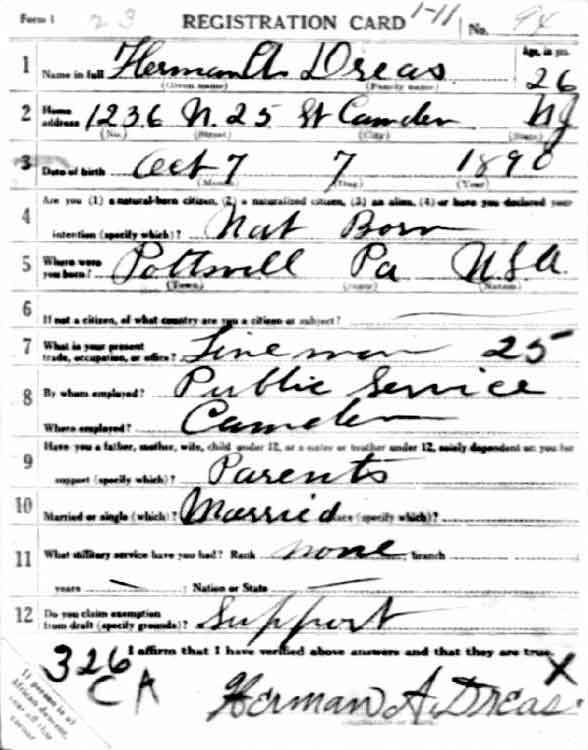 Form 1 23 REGISTRATION CARD 1-11 No. 94
1 Name in full Herman A Dreas Age, in yrs. 26
(Given name) (Family name)
2 Home address 1236 N. 25 St Camden NJ
(No.) (Street) (City) (State)
3 Date of birth Oct 7 7 1890
(Month) (Day) (Year)
4 Are you (1) a natural-born citizen, (2) a naturalized citizen, (3) an alien, (4) or have you declared your
intention (specify which)? Nat Born
5 Where were you born? Pottsvill Pa USA
(Town) (State) (Nation)
6 If not a citizen, of what country are you a citizen or subject?
7 What is your present trade, occupation, or office? Line man 25
8 By whom employed? Public Service
Where employed? Camden
9 Have you a father, mother, wife, child under 12, or a sister or brother under 12, solely dependent on you for
support (specify which)? Parents
10 Married or single (which)? Married Race (specify which)?
11 What military service have you had? Rank none branch
years ; Nation or State
12 Do you claim exemption from draft (specify grounds)? Support
I affirm that I have verified above answers and that they are true.
326 X
CA Herman A. Dreas
If person is of
African descent,
tear off this
corner